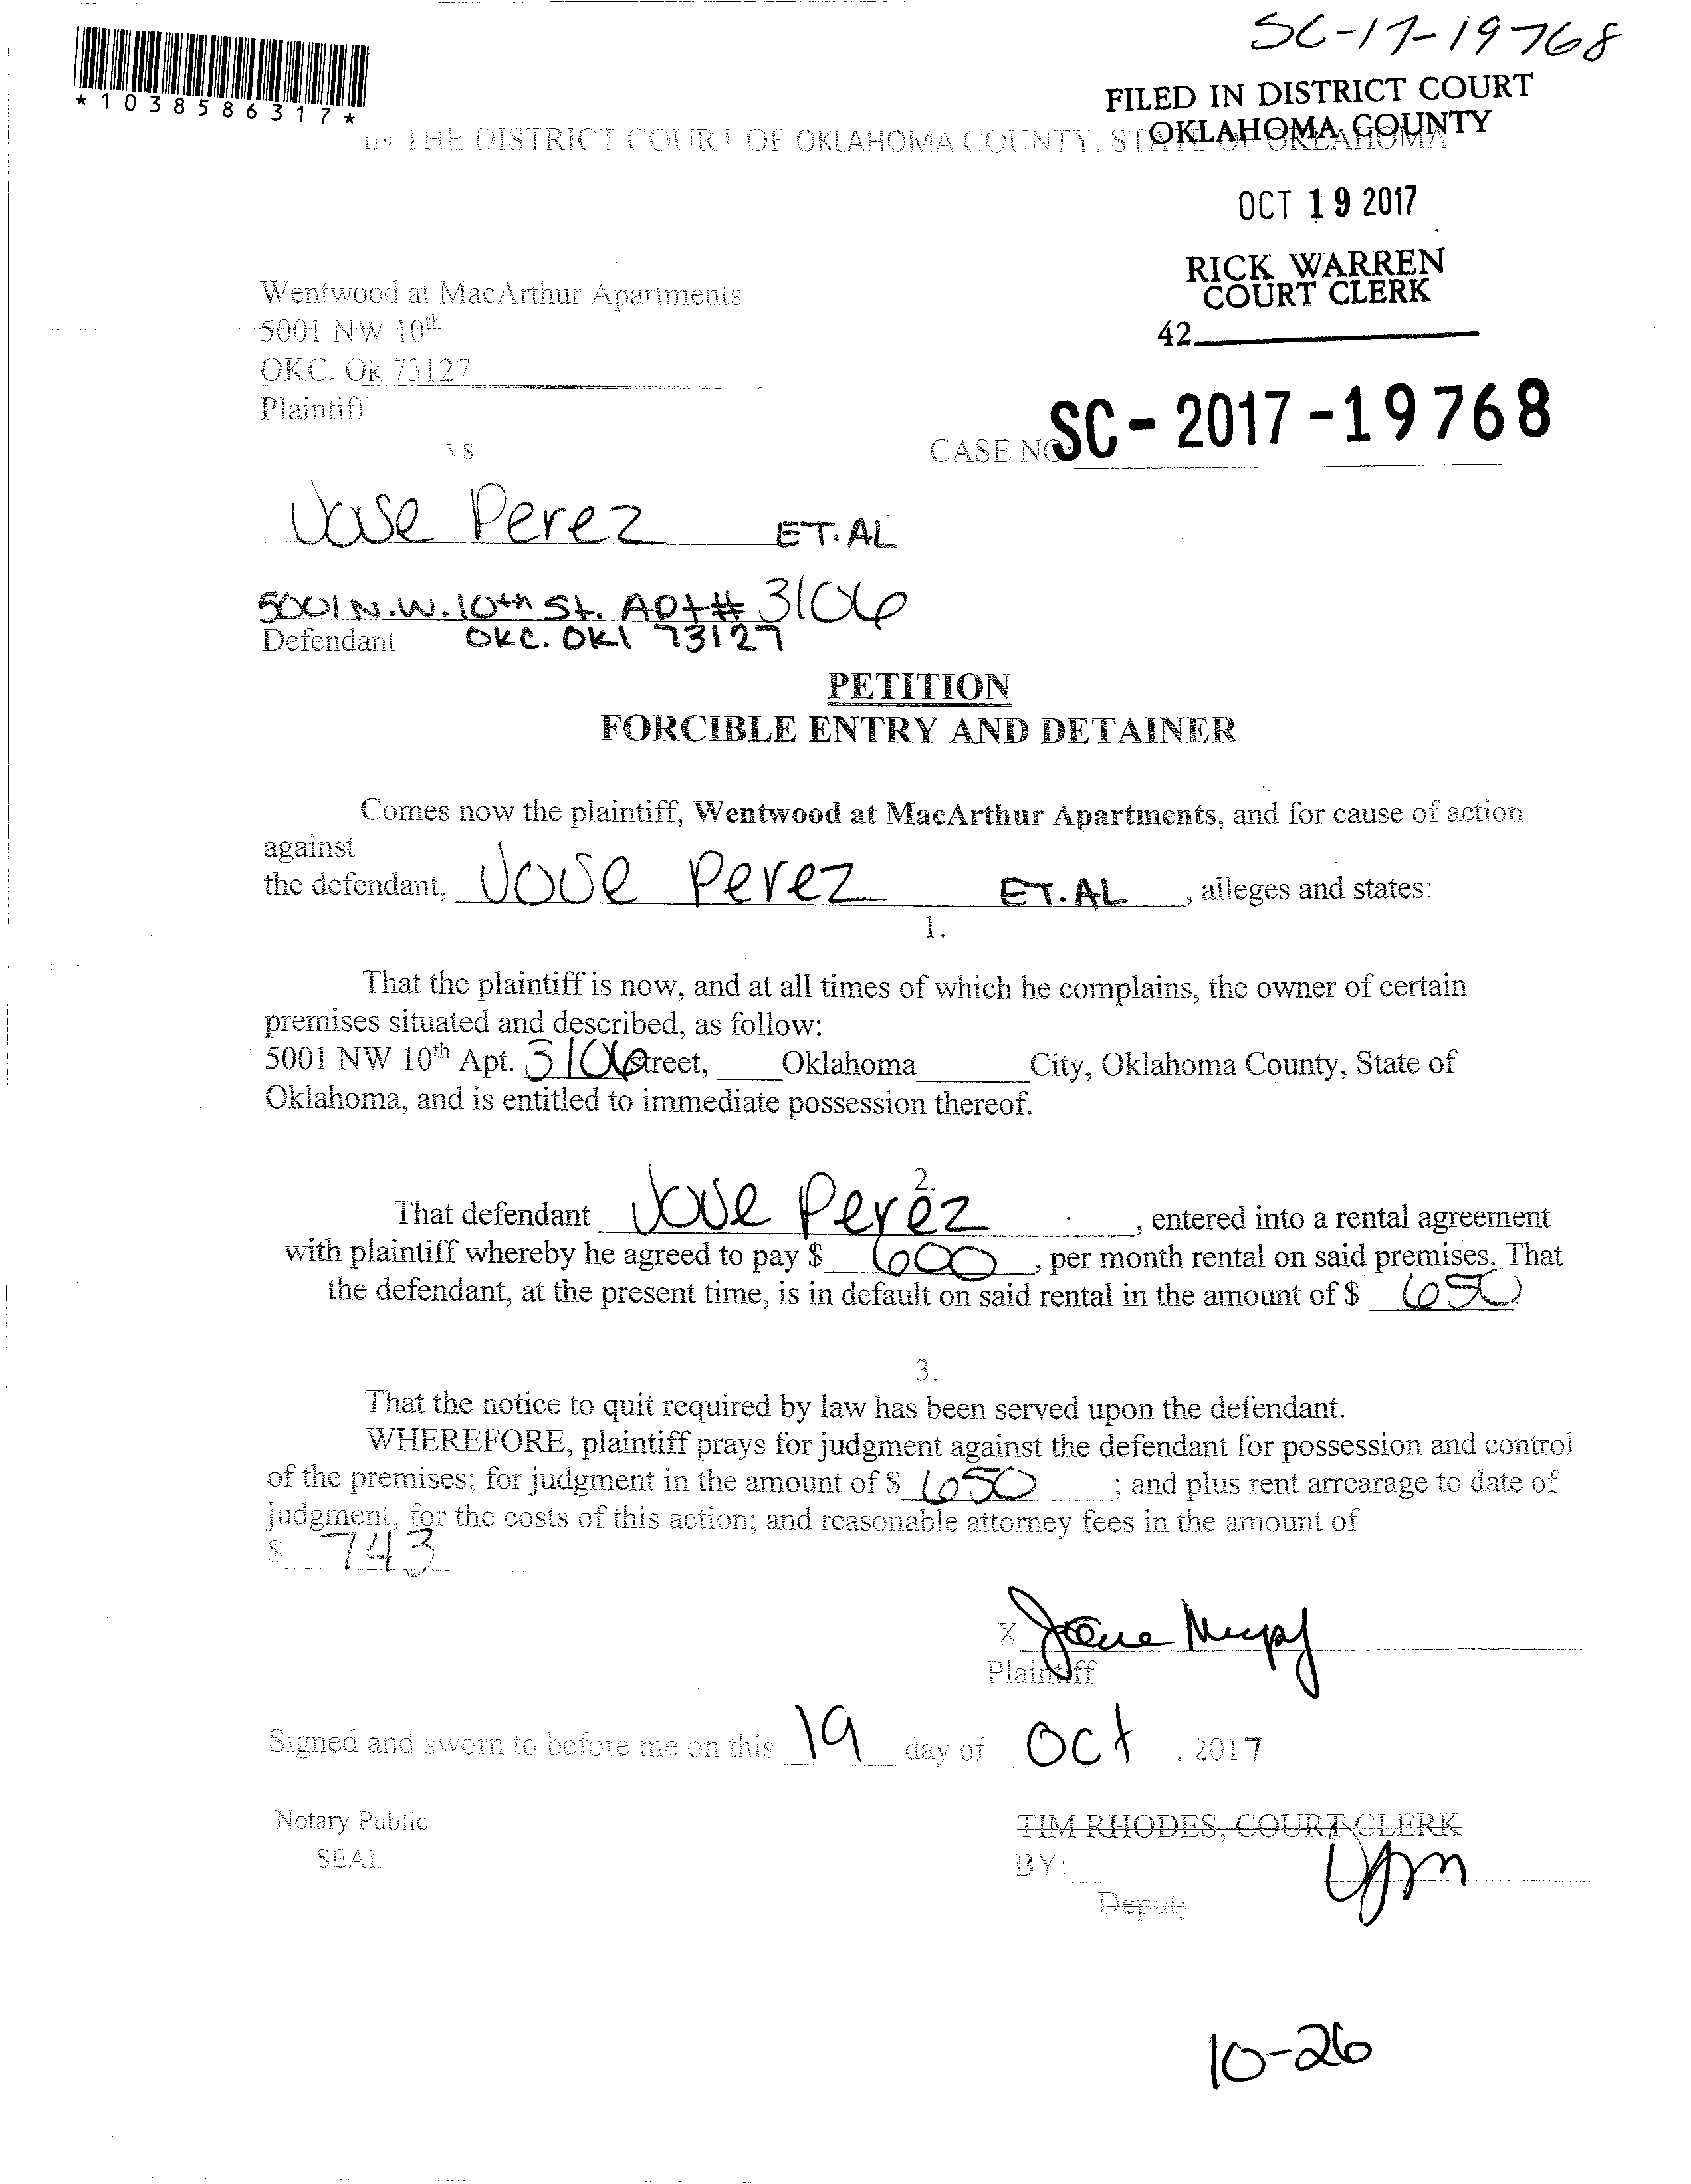 SC-17-19768
*1038586317*
FILED IN DISTRICT COURT
OKLAHOMA COUNTY
IN THE DISTRICT COURT OF OKLAHOMA COUNTY, STATE OF OKLAHOMA
OCT 19 2017
RICK WARREN
COURT CLERK
42
Wentwood at MacArthur Apartments
5001 NW 10th
OKC, Ok 73127
Plaintiff
VS
CASE NO. SC-2017-19768
Jose Perez ET.AL
5001 N.W. 10th St. Apt# 3106
Defendant OKC. OKl 73127
PETITION
FORCIBLE ENTRY AND DETAINER
Comes now the plaintiff, Wentwood at MacArthur Apartments, and for cause of action
against
the defendant, Jose Perez ET.AL, alleges and states:
1.
That the plaintiff is now, and at all times of which he complains, the owner of certain
premises situated and described, as follow:
5001 NW 10th Apt. 3106 Street, Oklahoma City, Oklahoma County, State of
Oklahoma, and is entitled to immediate possession thereof.
2.
That defendant Jose Perez, entered into a rental agreement
with plaintiff whereby he agreed to pay $ 600, per month rental on said premises. That
the defendant, at the present time, is in default on said rental in the amount of $ 650
3.
That the notice to quit required by law has been served upon the defendant.
WHEREFORE, plaintiff prays for judgment against the defendant for possession and control
of the premises; for judgment in the amount of $ 650; and plus rent arrearage to date of
judgment; for the costs of this action; and reasonable attorney fees in the amount of
$ 743
X
Plaintiff
Signed and sworn to before me on this 19 day of Oct, 2017
Notary Public
SEAL
TIM RHODES, COURT CLERK
BY:
Deputy
10-26